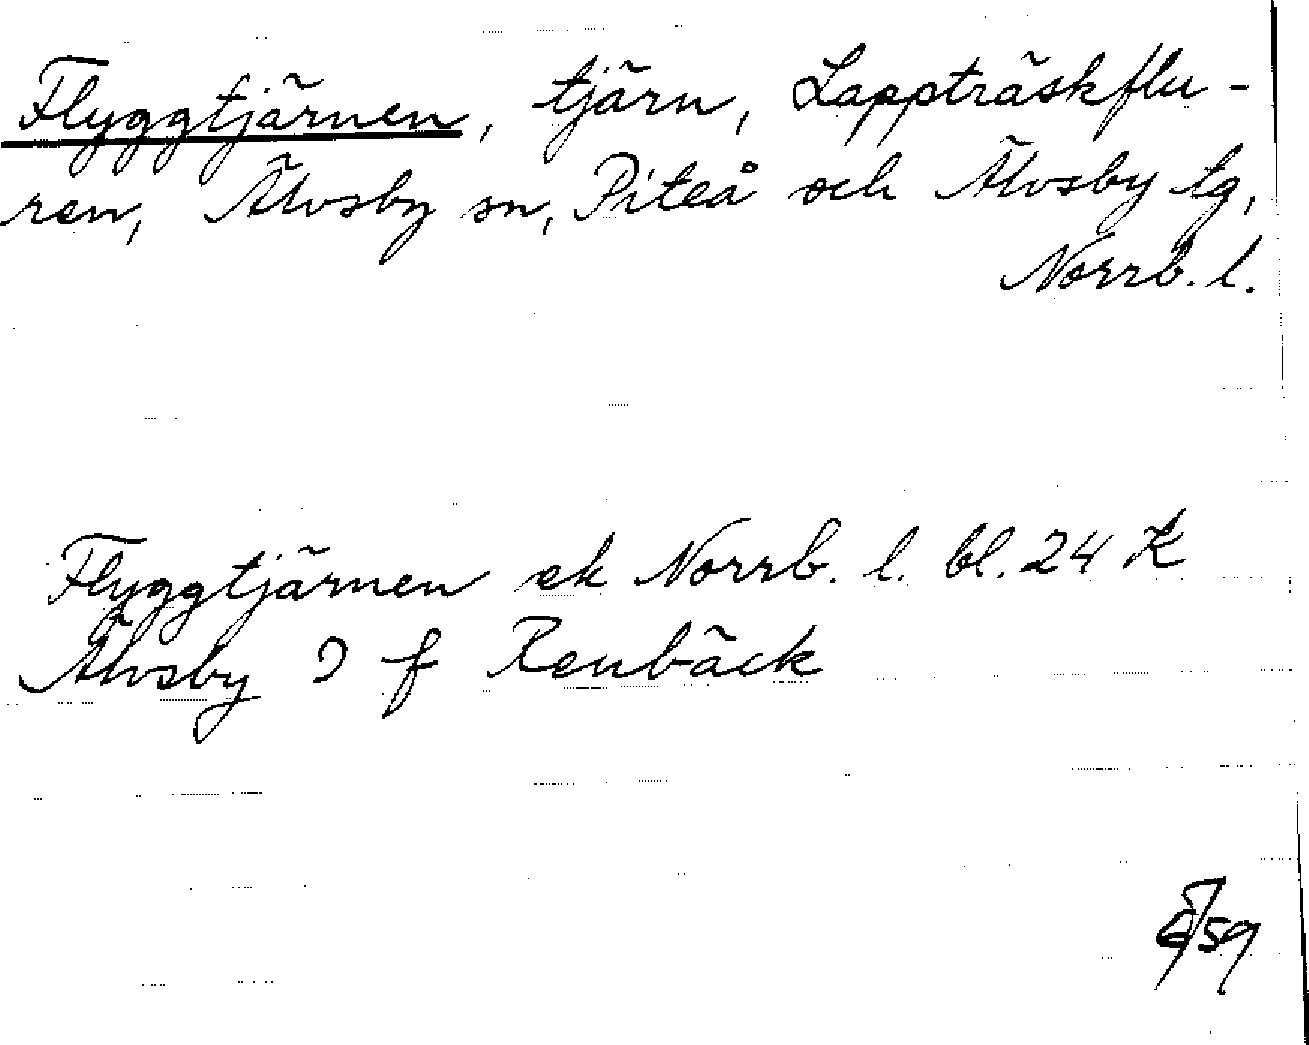 Flyggtjärnen, tjärn, Lappträskflu-
ren, Älvsby sn, Piteå och Älvsby tg,
Norrb. l.
Flyggtjärnen ek Norrb. l. bl. 24 K
Älvsby f Renbäck